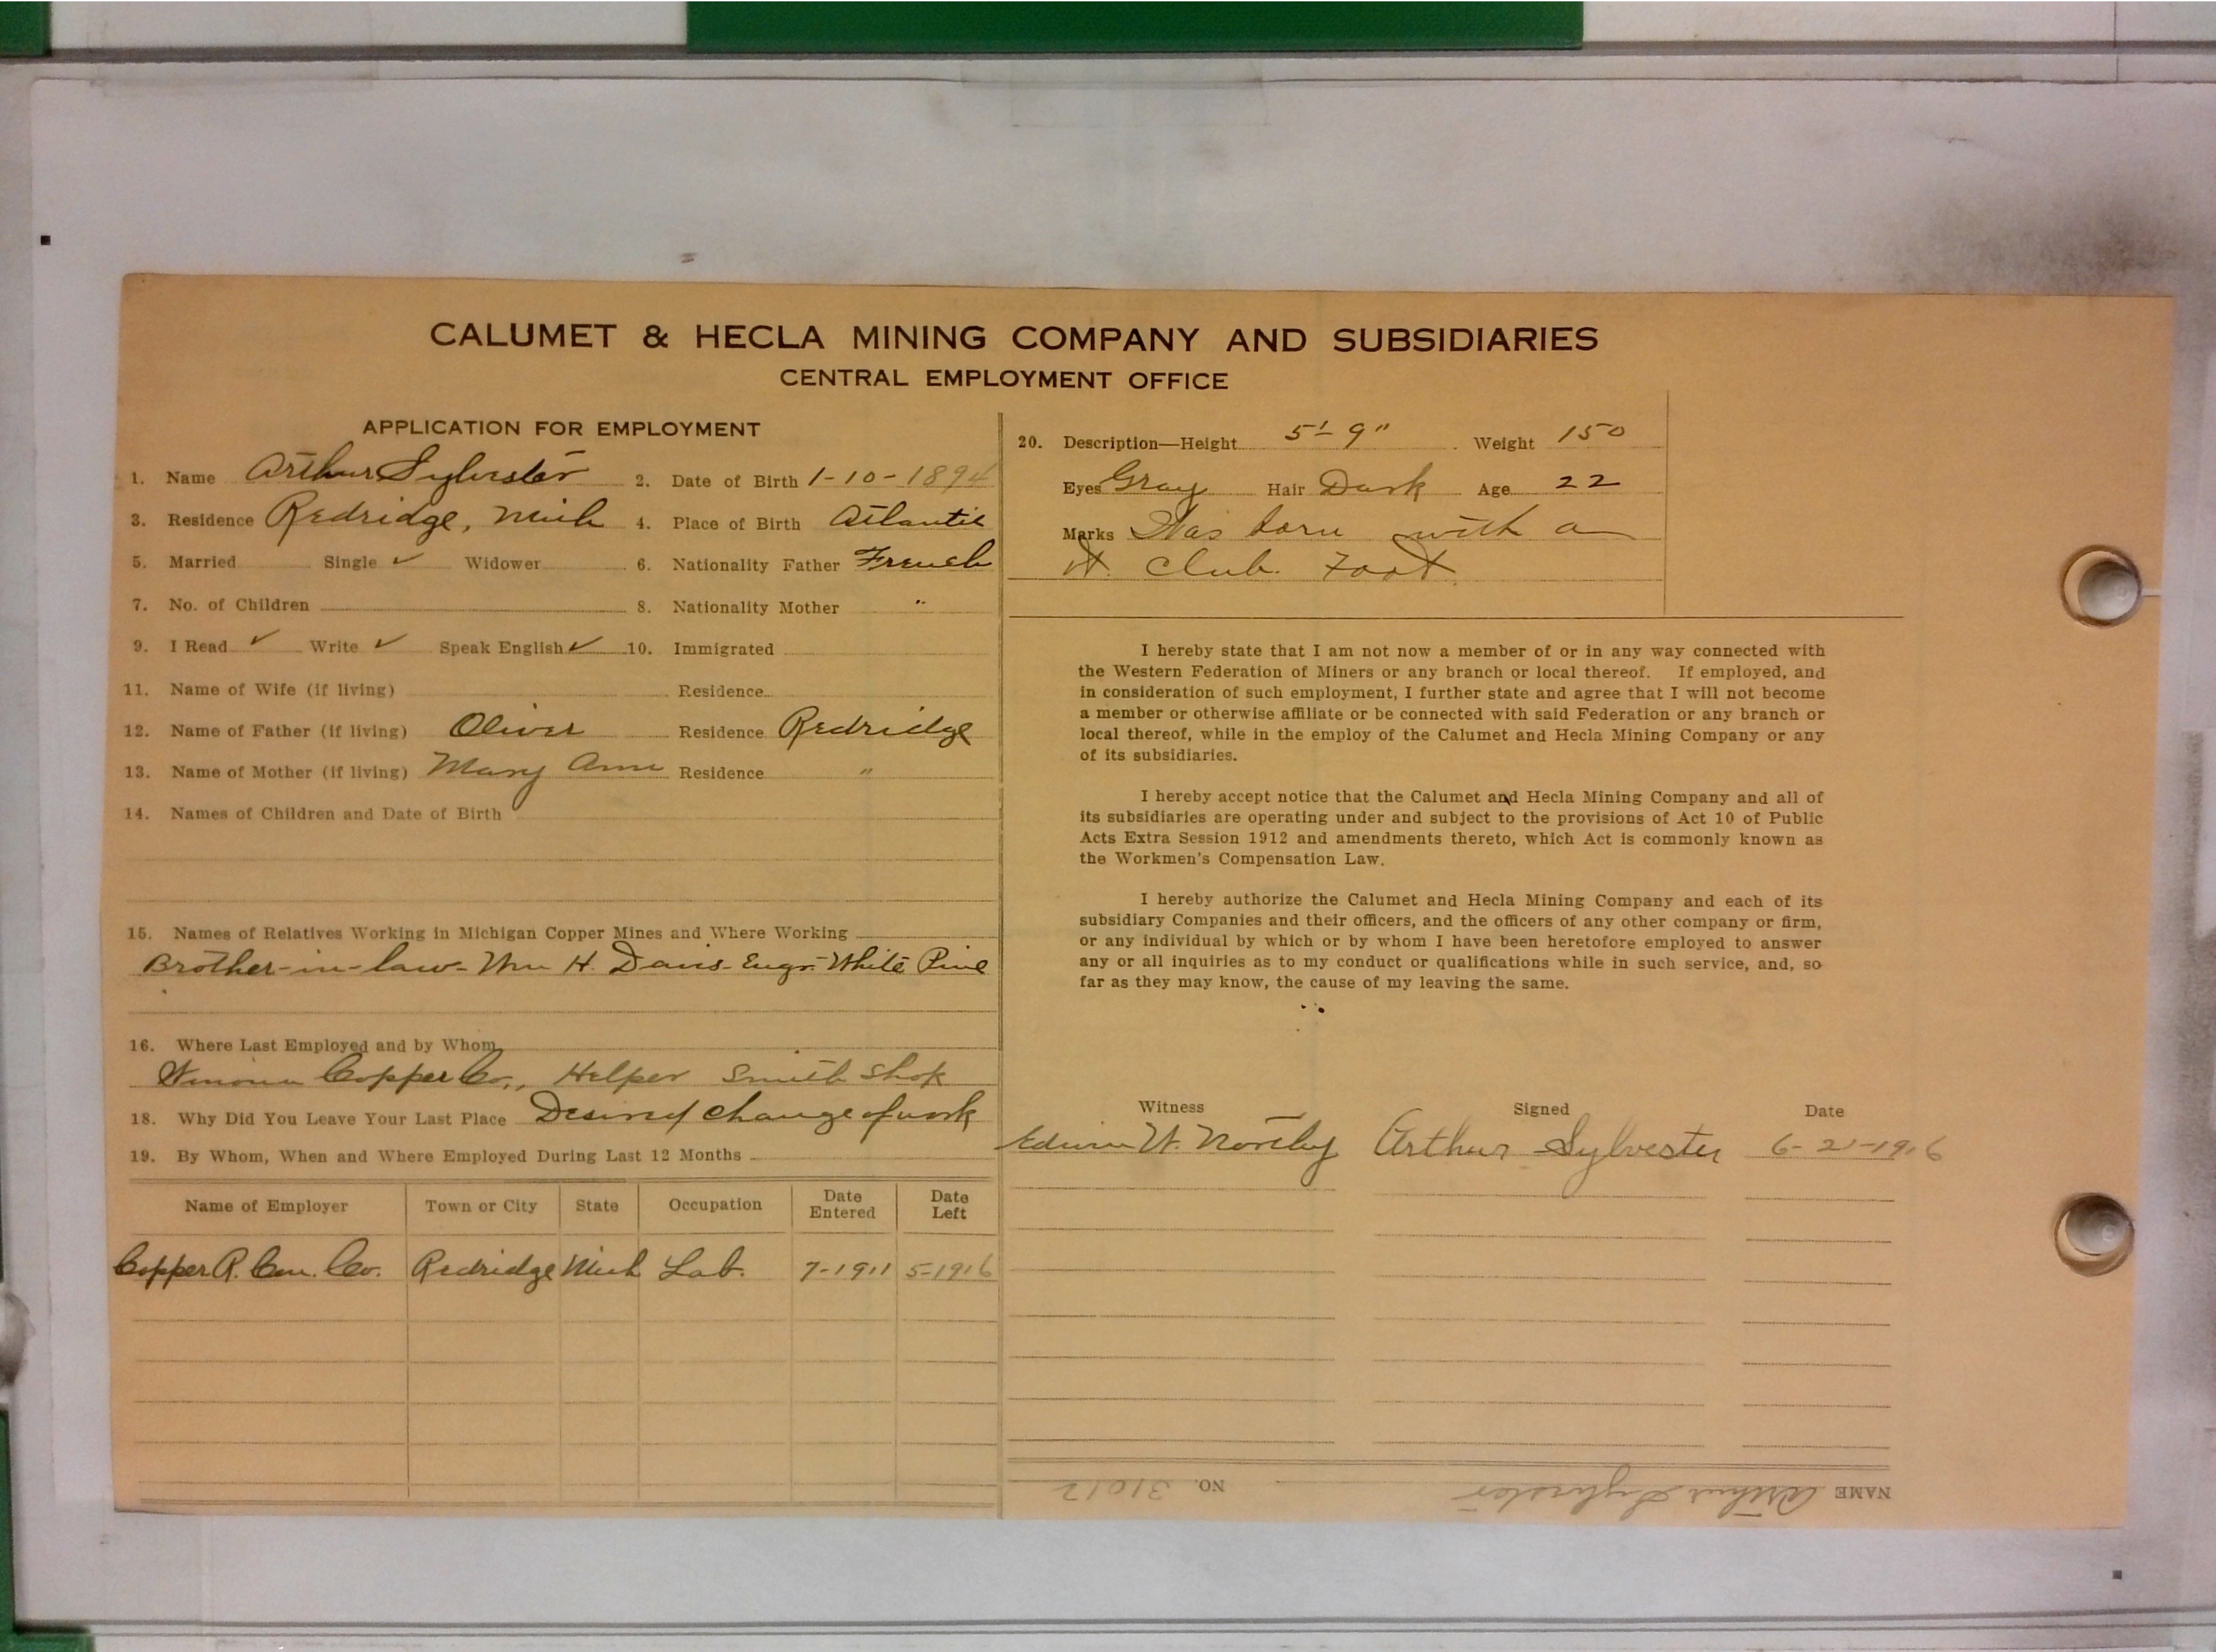 CALUMET & HECLA MINING COMPANY AND SUBSIDIARIES
CENTRAL EMPLOYMENT OFFICE
APPLICATION FOR EMPLOYMENT
1. Name Arthur Sylvester 2. Date of Birth 1-10-1894
3. Residence Redridge, Mich 4. Place of Birth Atlantic
5. Married Single ✓ Widower 6. Nationality Father French
7. No. of Children 8. Nationality Mother "
9. I Read ✓ Write ✓ Speak English ✓ 10. Immigrated
11. Name of Wife (if living) Residence
12. Name of Father (if living) Oliver Residence Redridge
13. Name of Mother (if living) Mary Ann Residence "
14. Names of Children and Date of Birth
15. Names of Relatives Working in Michigan Copper Mines and Where Working
Brother-in-law- Wm H. Davis- Engr- White Pine
16. Where Last Employed and by Whom
Winona Copper Co., Helper Smith Shop
18. Why Did You Leave Your Last Place Desired change of work
19. By Whom, When and Where Employed During Last 12 Months
Name of Employer Town or City State Occupation Date Entered Date Left
Copper R. Co. Redridge Mich Lab. 7-1911 5-1916
20. Description—Height 5'- 9" Weight 150
Eyes Gray Hair Dark Age 22
Marks Was born with a
Club. Foot
I hereby state that I am not now a member of or in any way connected with
the Western Federation of Miners or any branch or local thereof. If employed, and
in consideration of such employment, I further state and agree that I will not become
a member or otherwise affiliate or be connected with said Federation or any branch or
local thereof, while in the employ of the Calumet and Hecla Mining Company or any
of its subsidiaries.
I hereby accept notice that the Calumet and Hecla Mining Company and all of
its subsidiaries are operating under and subject to the provisions of Act 10 of Public
Acts Extra Session 1912 and amendments thereto, which Act is commonly known as
the Workmen's Compensation Law.
I hereby authorize the Calumet and Hecla Mining Company and each of its
subsidiary Companies and their officers, and the officers of any other company or firm,
or any individual by which or by whom I have been heretofore employed to answer
any or all inquiries as to my conduct or qualifications while in such service, and, so
far as they may know, the cause of my leaving the same.
Witness Signed Date
Edwin W. Northey Arthur Sylvester 6-21-1916
NAME Arthur Sylvester NO. 31012